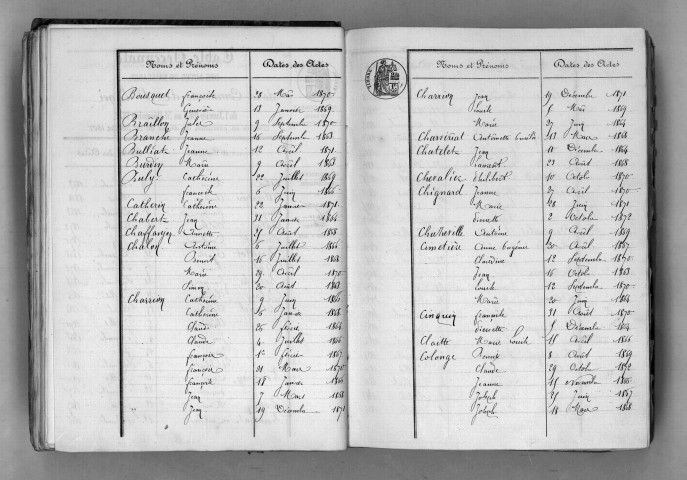 Noms et Prénoms Dates des Actes
Bousquet françoise 28 Mai 1870
13 Janvier 1869
Braillon Jules 9 Septembre 1870
Branche Jeanne 16 Septembre 1863
Bulliat Jeanne 12 Avril 1871
Marie 9 Avril 1863
Catherine 22 Juillet 1869
francois 6 Juin 1866
Catherin Catherine 22 Janvier 1871
Chabert Jean 31 Janvier
Chaffanjon 25 Août 1868
Chalon Antoine 6 Juillet 1866
Benoit 16 Juillet 1868
Marie 29 Avril 1870
Simon 20 Août 1863
Charrion Catherine 9 Juin 1866
Catherine 5 Janvier 1868
Claude 26 février 1864
Claude 4 Juillet 1866
françois 1er février 1867
françois 21 Mars 1870
françois 18 Janvier 1866
Jean 7 Mars 1868
" Jean 19 Décembre 1871
Noms et Prénoms Dates des Actes
Charrion Jean 19 Décembre 1871
Louise Mai 1869
Marie 27 Juin 1864
Antoinette 13 Mars 1868
Chatelet Jean 18 Décembre 1864
23 Août 1868
Chevalier Philibert 10 Octobre 1870
Chignard Jeanne 27 Avril 1870
Marie 28 Juin 1871
Pierrette 2 Octobre 1872
Antoine 9 Avril 1869
Cimetière Eugène 20 Avril 1867
Claudine 12 Septembre 1870
Jean 16 Octobre 1863
Louise 12 Septembre 1870
Marie 20 Juin 1864
Cinquin françoise 31 Août 1870
Pierrette 5 Décembre 1864
Clatte Marie Louise 15 Avril 1866
Colonge 8 Août 1869
Claude 29 Octobre 1872
Jeanne 15 novembre 1866
Joseph 25 Juin 1867
Joseph 18 Mars 1868